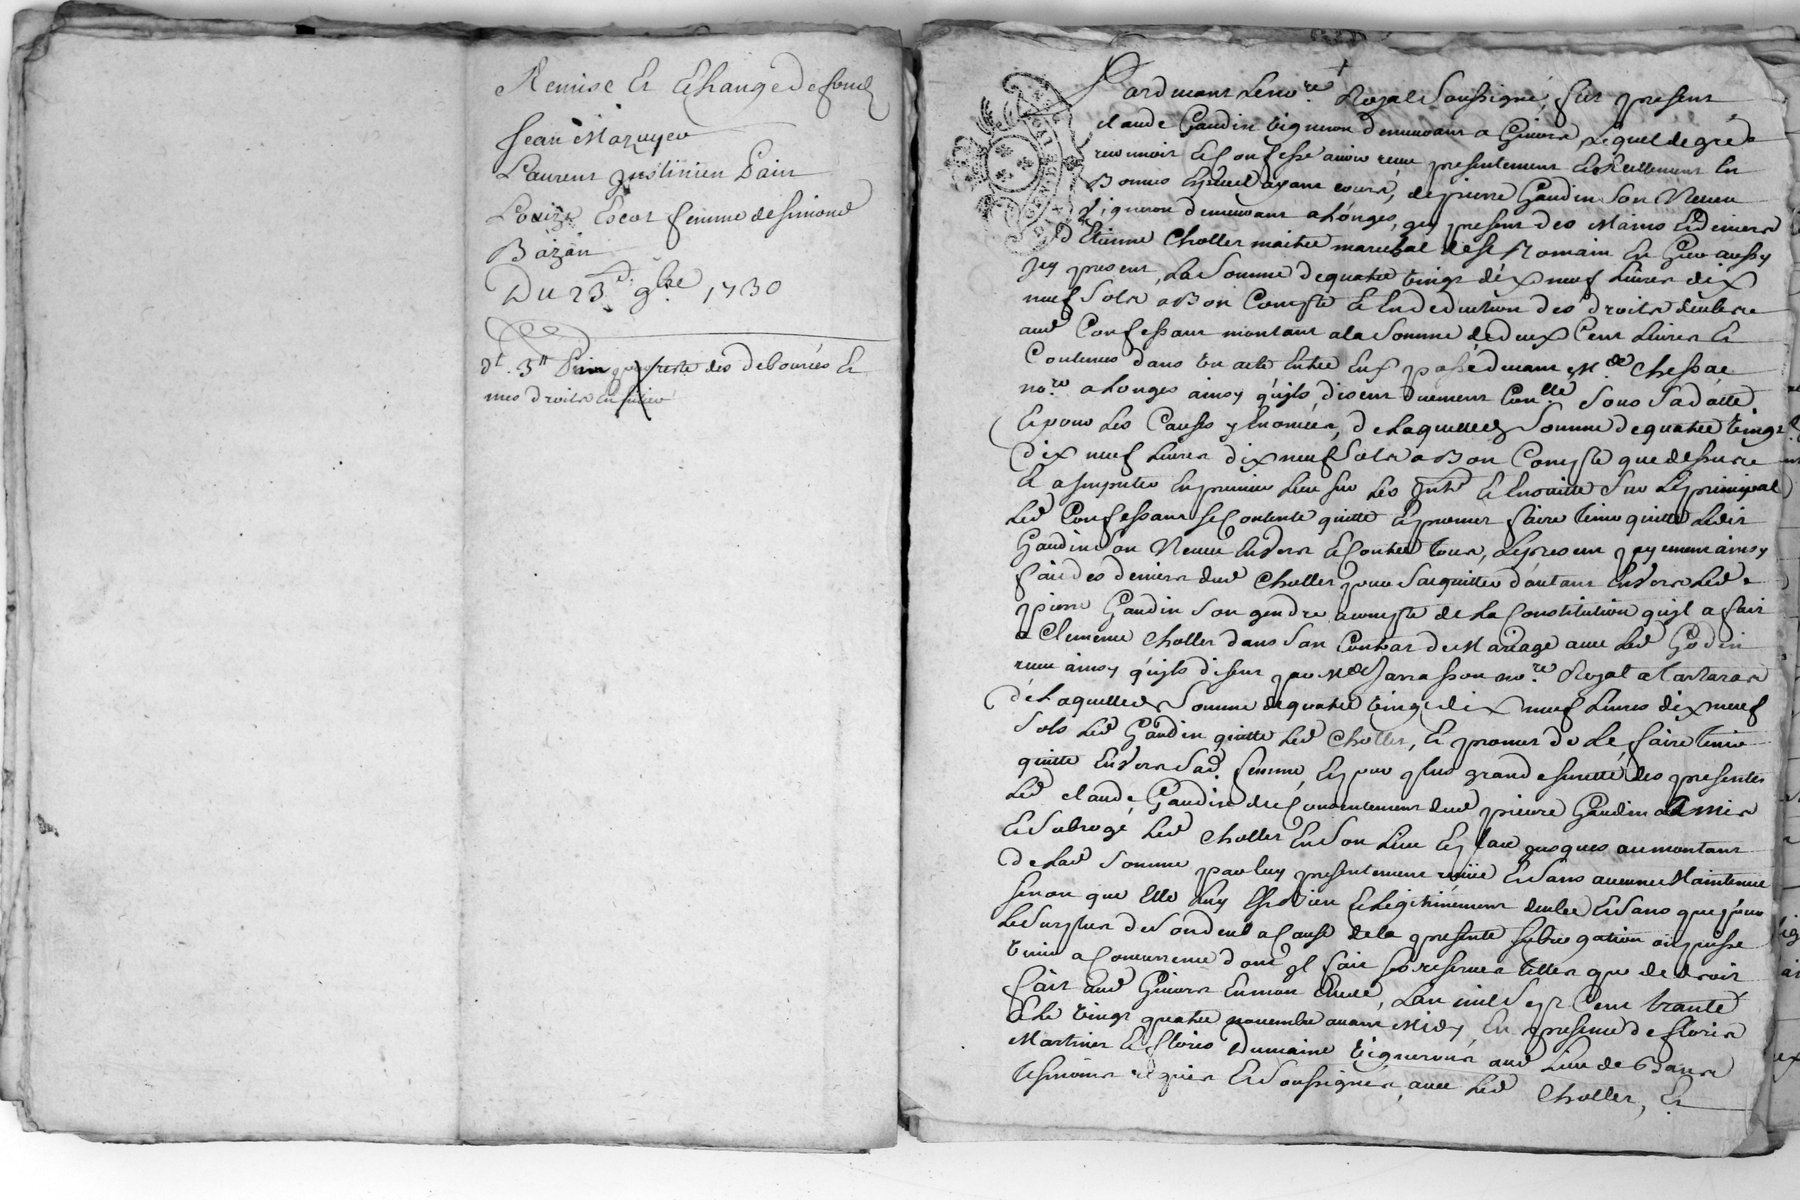 Remise Et Echange de fondz
Jean Mazuyer
Laurent Justinien Pain
Louize Escot femme de simond
Bazan
Du 23e. 9bre 1730
dt. 3tt reste des debourcés Et
mes droits En
DIX DEN
Pardevant Le nore Royal Soussigné, fut present
claude Gaudin Vigneron demeurant a Givors Lequel de gré a
reconnu Et Confessé avoir receu presentement Et Reellement En
Bonnes Especes ayant cours, de pierre Gaudin Son Neveu
Vigneron demeurant a Longes, icy present des Mains Et deniers
d'Etienne Chollet maitre marechal de St Romain En Gier aussy
icy present, La Somme de quatre vingt dix neuf Livres dix
neuf Sols a Bon Compte Et En deduction des droits deubs
aud Confessant montant a la Somme de deux Cent Livres Et
Contenus dans un acte Entre Eux passé devant Me. Chessae
nore a Longes ainsy qu'ils disent Sous Sa datte
Et pour Les Causes y Enoncées, de Laquelle Somme de quatre vingt
dix neuf Livres dix neuf Sols a Bon Compte que dessus
Et a imputer En premier Lieu sur Les Intts Et Ensuitte Sur Le principal
Led Confessant se Contente quitte Et promet faire tenir quitte Ledit
Gaudin Son Neveu Envers Et Contre tous, Le present payement ainsy
fait des deniers dud Chollet pour Saquitter d'autant Envers Led
pierre Gaudin Son gendre acompte de La Constitution qu'il a fait
a Clemence Chollet dans Son Contrat de Mariage avec Led Godin
receu ainsy qu'ils disent par Me Jarrasson nore Royal a Tartaras
de Laquelle Somme de quatre vingt dix neuf Livres dix neuf
Sols Led Gaudin quitte Led Chollet, Et promet de Le faire tenir
quitte Envers Sad. femme, Et pour plus grande sureté des presentes
Led claude Gaudin du Consentement dud pierre Gaudin a Mis
Et Subrogé Led Chollet En Son Lieu Et place jusques au montant
de Lad Somme par luy presentement receüe Et Sans aucune Maintenue
sinon que Elle Luy Est bien Et Legitimement deube Et Sans que pour
Le Surplus de Son deub a Cause de la presente subrogation on puisse
venir a Concurrence dont il fait ses reserves telles que de droit
fait aud Givors En mon Etude, Lan mil Sept Cent trante
Et Le vingt quatre novembre avant Midy En presence de floris
Martinet Et floris Dumaine Vignerons aud Lieu de Bans
tesmoins requis Et Soussignés, avec Led Chollet, Et